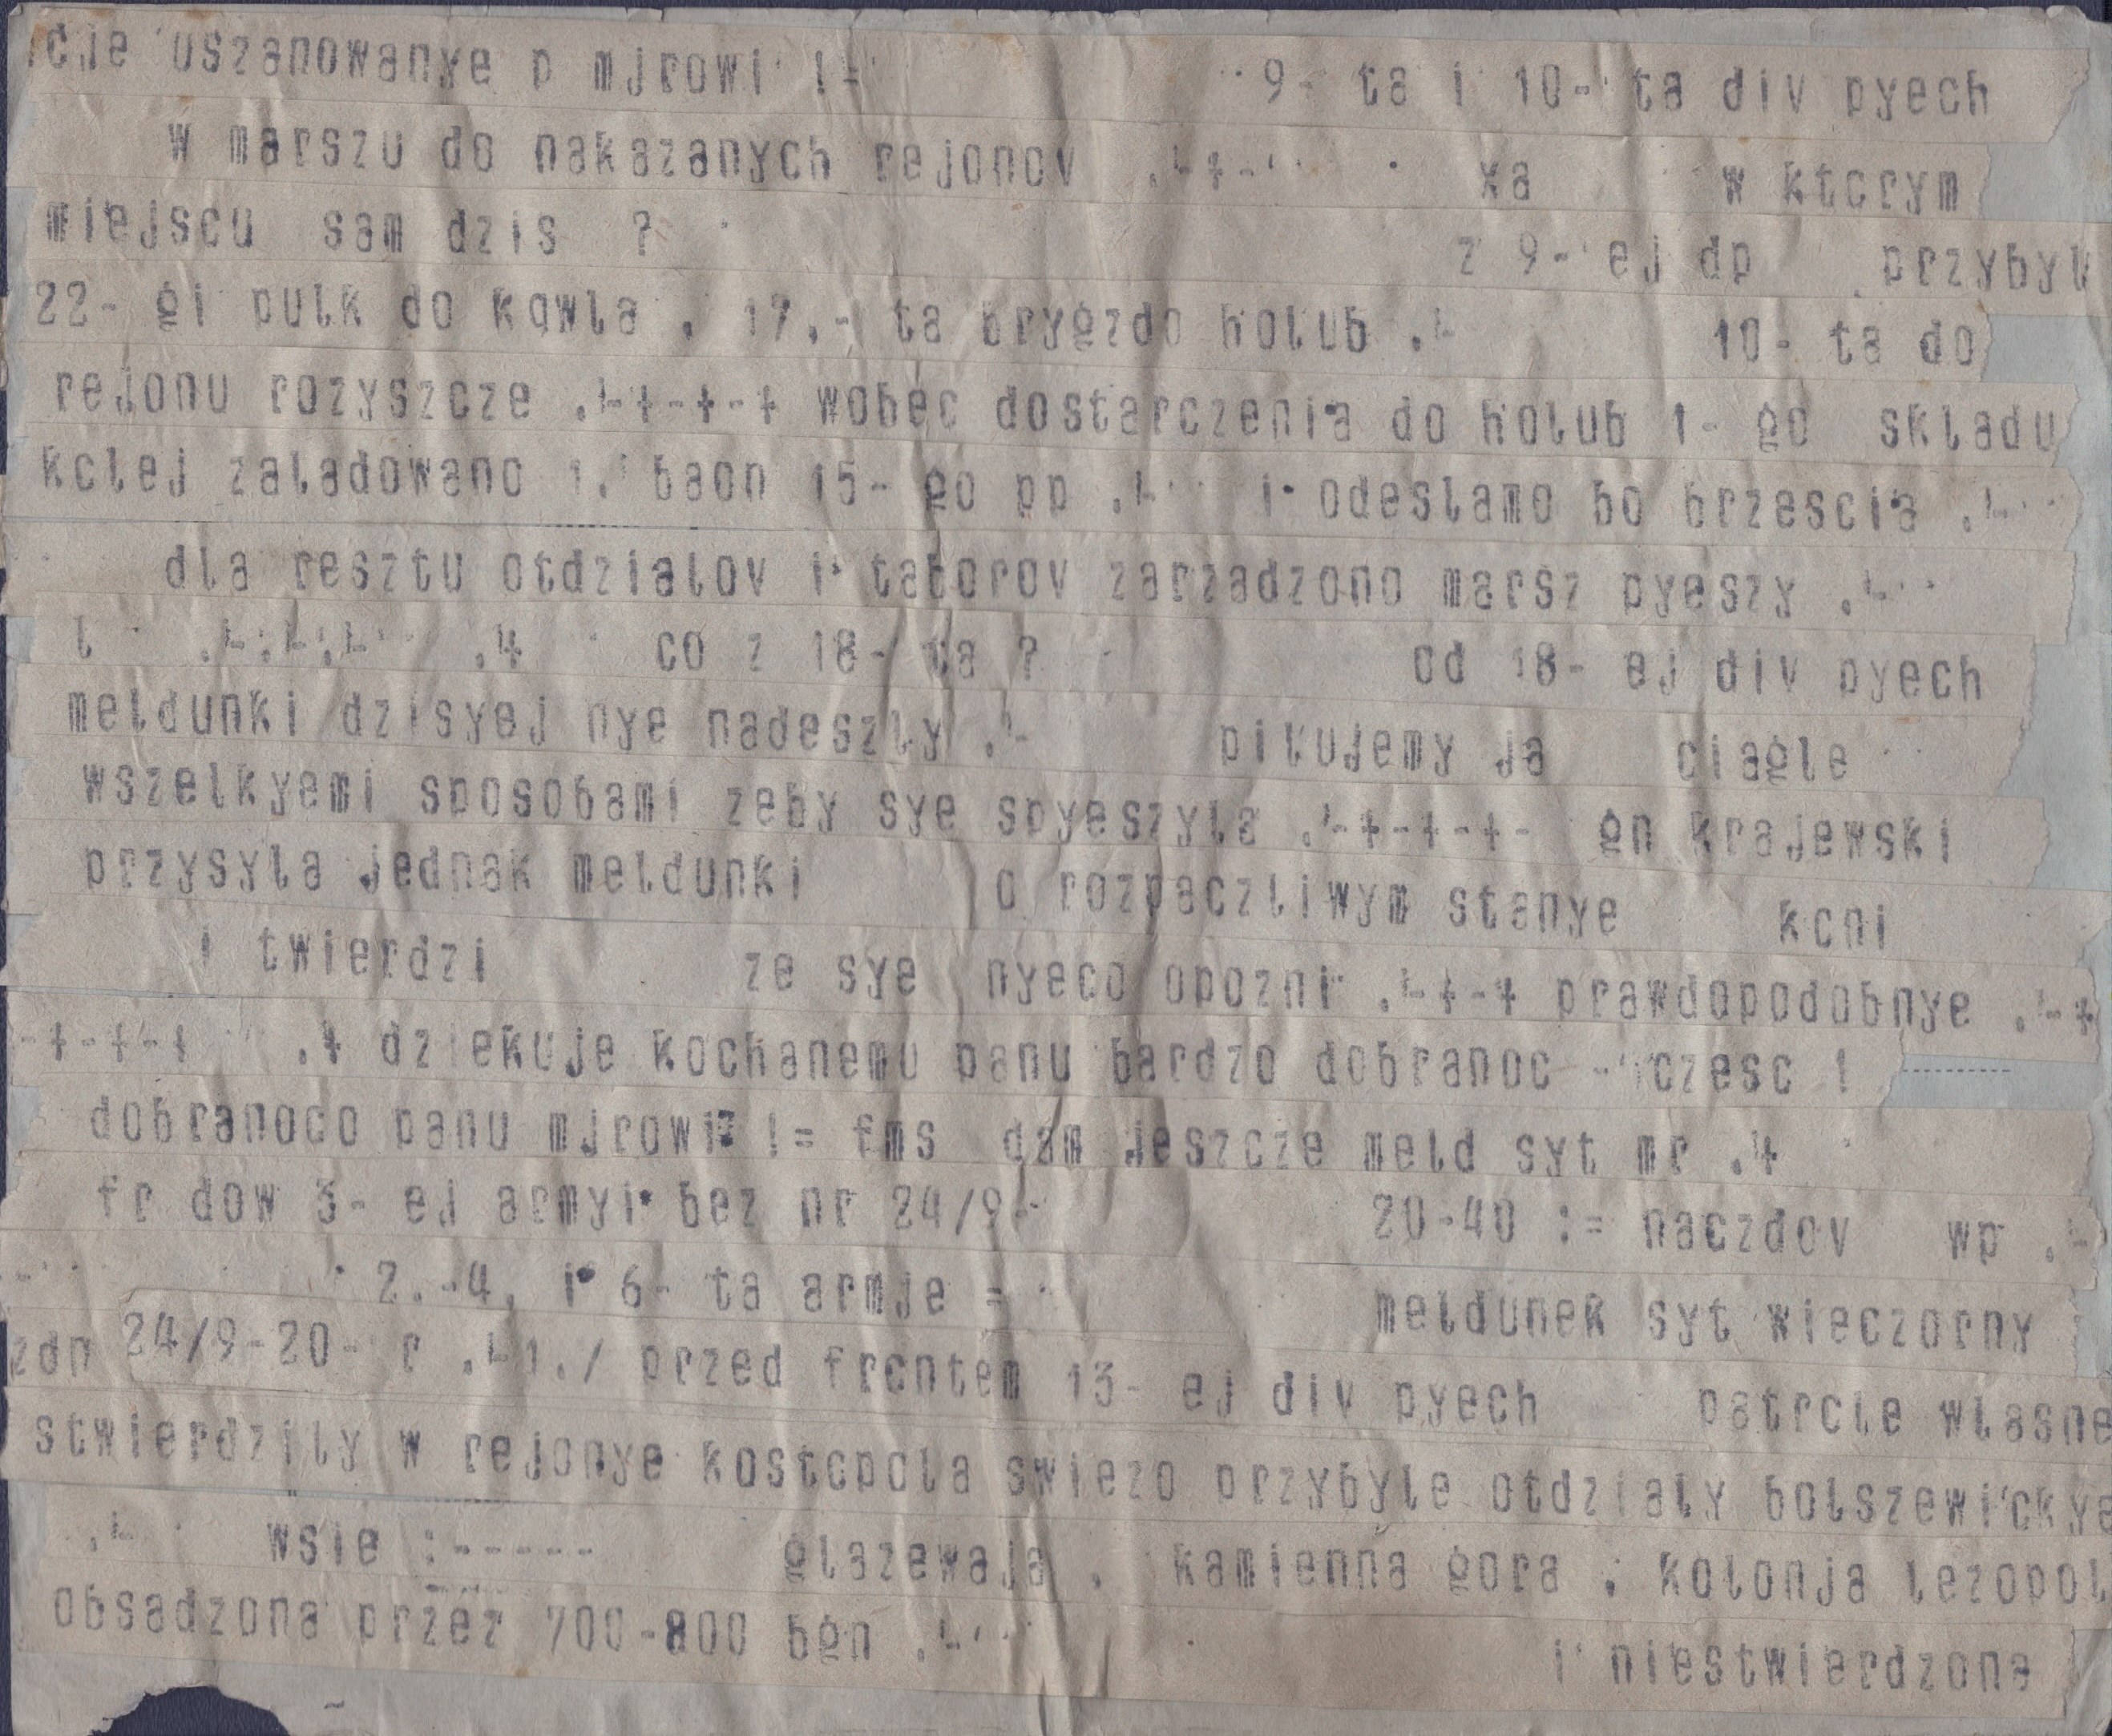 cje uszanowanye p mjrowi != 9- ta i 10- ta div pyech
w marszu do nakazanych rejonov .-+- xa w ktcrym
miejscu sam dzis ? z 9- ej dp przybyl
22- gi pulk do kqwla , 17.- ta brygzdo holub .- 10- ta do
rejonu rozyszcze .-+-+-+ wobec dostarczenia do holub 1- go skladu
kclej zaladowano 1. baon 15- go pp .- i odeslamo bo brzescia .-
dla resztu otdzialov i taborov zarzadzono marsz pyeszy .-
l .-.-.- .4 co z 18- ta ? od 18- ej div pyech
meldunki dzisyej nye nadeszly .- pilujemy ja ciagle
wszelkyemi sposobami zeby sye spyeszyla .-+-+-+- gn krajewski
przysyla jednak meldunki o rozpaczliwym stanye kcni
i twierdzi ze sye nyeco opozni .-+-+ prawdopodobnye .-+
-+-+-+ .+ dziekuje kochanemu panu bardzo dobranoc - czesc !
dobranoco panu mjrowi? != fms dam jeszcze meld syt mr .4
fr dow 3- ej armyi bez nr 24/9- 20-40 := naczdov wp .-
- 2.-4, i 6- ta armje = meldunek syt wieczorny
zdn 24/9-20- r .-1./ przed frcntem 13- ej div pyech patrcle wlasne
stwierdzily w rejonye kostcpola swiezo przybyle otdzialy bolszewickye
.- wsie :----- glazewaja , kamienna gora , kolonja lezopol
obsadzona przez 700-800 bgn .- i niestwierdzone